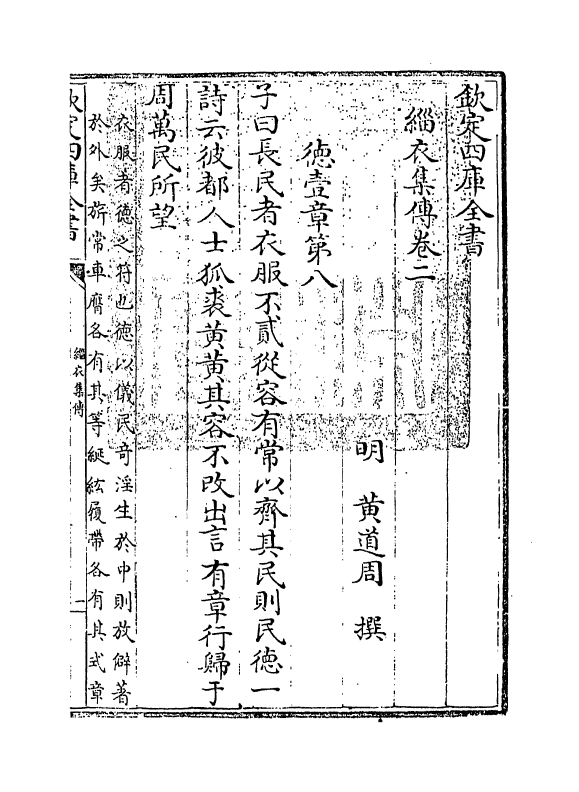 欽定四庫全書
緇衣集傳卷二
明 黃道周 撰
徳壹章第八
子曰長民者衣服不貳從容有常以齊其民則民徳一
詩云彼都人士狐裘黄黄其容不改出言有章行歸于
周萬民所望
衣服者徳之符也徳以儀民奇淫生於中則放僻著
於外矣旂常車旟各有其等綖紘履帶各有其式章
欽定四庫全書
緇衣集傳
一